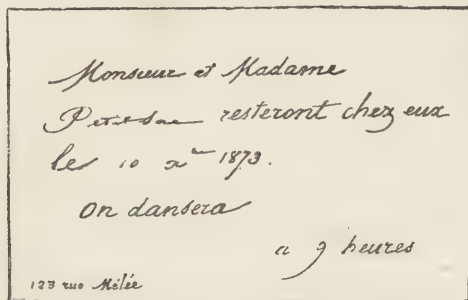 Monsieur et Madame
Petit-Sac resteront chez eux
le 10 xbre 1873.
On dansera
a 9 heures
123 rue Mêlée